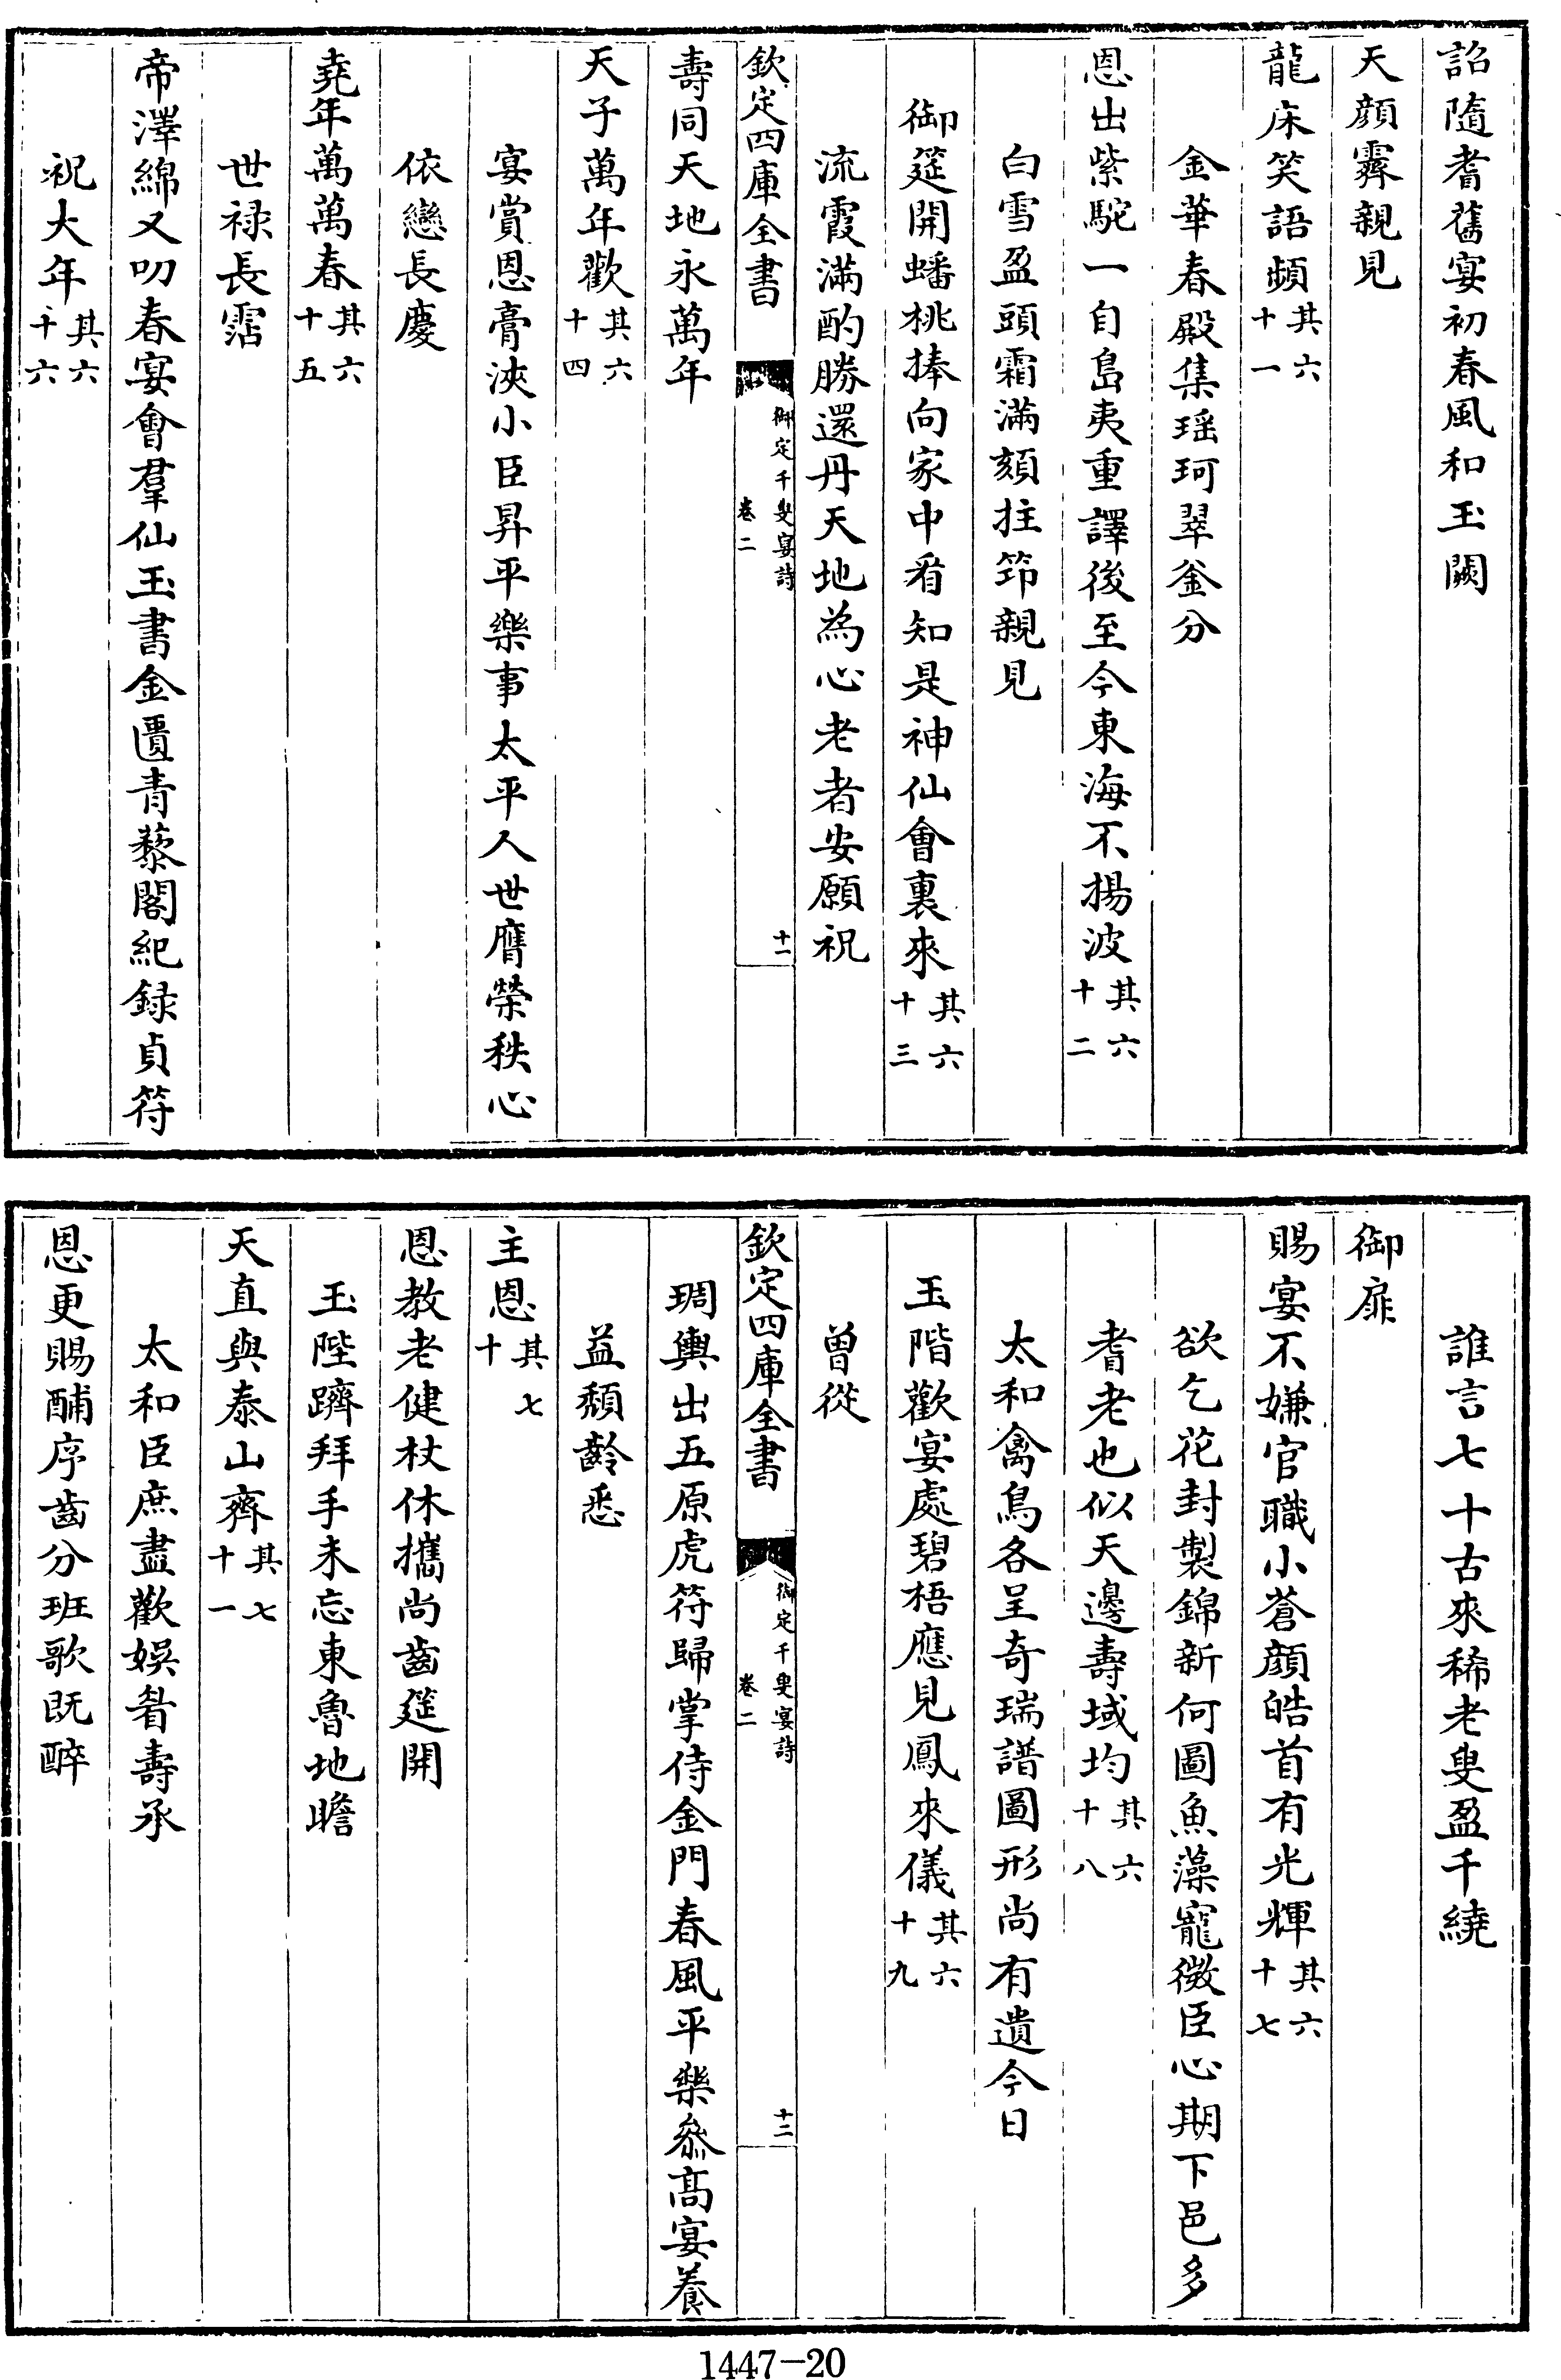 詔隨耆舊宴初春風和玉闕
天顏霽親見
龍床笑語頻其六十一
金華春殿集瑶珂翠釜分
恩出紫駝一自島夷重譯後至今東海不揚波其六十二
白雪盈頭霜滿頦拄笻親見
御筵開蟠桃捧向家中看知是神仙會裏來其六十三
流霞滿酌勝還丹天地為心老者安願祝
欽定四庫全書
御定千叟宴詩
卷二
十一
壽同天地永萬年
天子萬年歡其六十四
宴賞恩膏浹小臣昇平樂事太平人世膺榮秩心
依戀長慶
堯年萬萬春其六十五
世禄長霑
帝澤綿又叨春宴會羣仙玉書金匱青藜閣紀録貞符
祝大年其六十六
誰言七十古來稀老叟盈千繞
御扉
賜宴不嫌官職小蒼顔皓首有光輝其六十七
欲乞花封製錦新何圖魚藻寵微臣心期下邑多
耆老也似天邊壽域均其六十八
太和禽鳥各呈奇瑞譜圖形尚有遺今日
玉階歡宴處碧梧應見鳳來儀其六十九
曽從
欽定四庫全書
御定千叟宴詩
卷二
十二
琱輿出五原虎符歸掌侍金門春風平樂叅髙宴養
益頽齡悉
主恩其七十
恩教老健杖休攜尚齒筵開
玉陛躋拜手未忘東魯地瞻
天直與泰山齊其七十一
太和臣庶盡歡娛眉壽承
恩更賜酺序齒分班歌既醉
1447-20